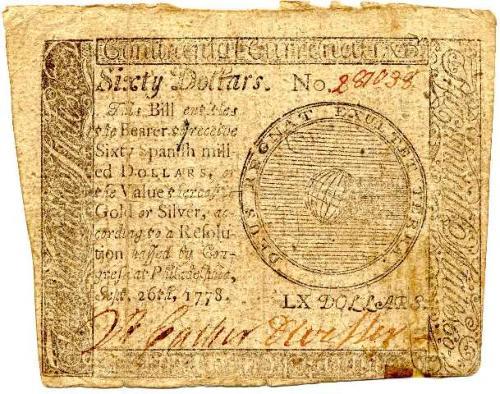 Continental
Sixty Dollars. No.
This Bill entitles
the Bearer to receive
Sixty Spanish mill-
ed DOLLARS, or
the Value thereof in
Gold or Silver, ac-
cording to a Resolu-
tion passed by Con-
gress at Philadelphia,
Sept. 26th, 1778.
DEUS REGNAT EXULTET TERRA.
LX DOLLARS